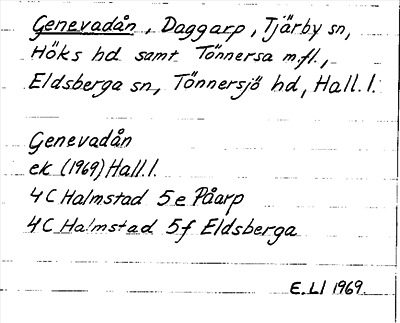 Genevadån, Daggarp, Tjärby sn,
Höks hd samt Tönnersa m.fl.,
Eldsberga sn, Tönnersjö hd, Hall. l.
Genevadån
ek (1969) Hall. l.
4C Halmstad 5e Påarp
4C Halmstad 5f Eldsberga
E. Ll 1969